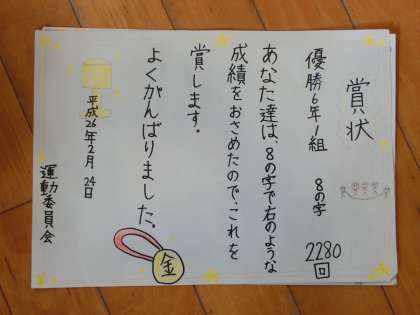 賞状
優勝6年1組 8の字
2280回
あなた達は、8の字で右のような
成績をおさめたので、これを
賞します。
よくがんばりました。
平成26年2月24日
運動委員会
金